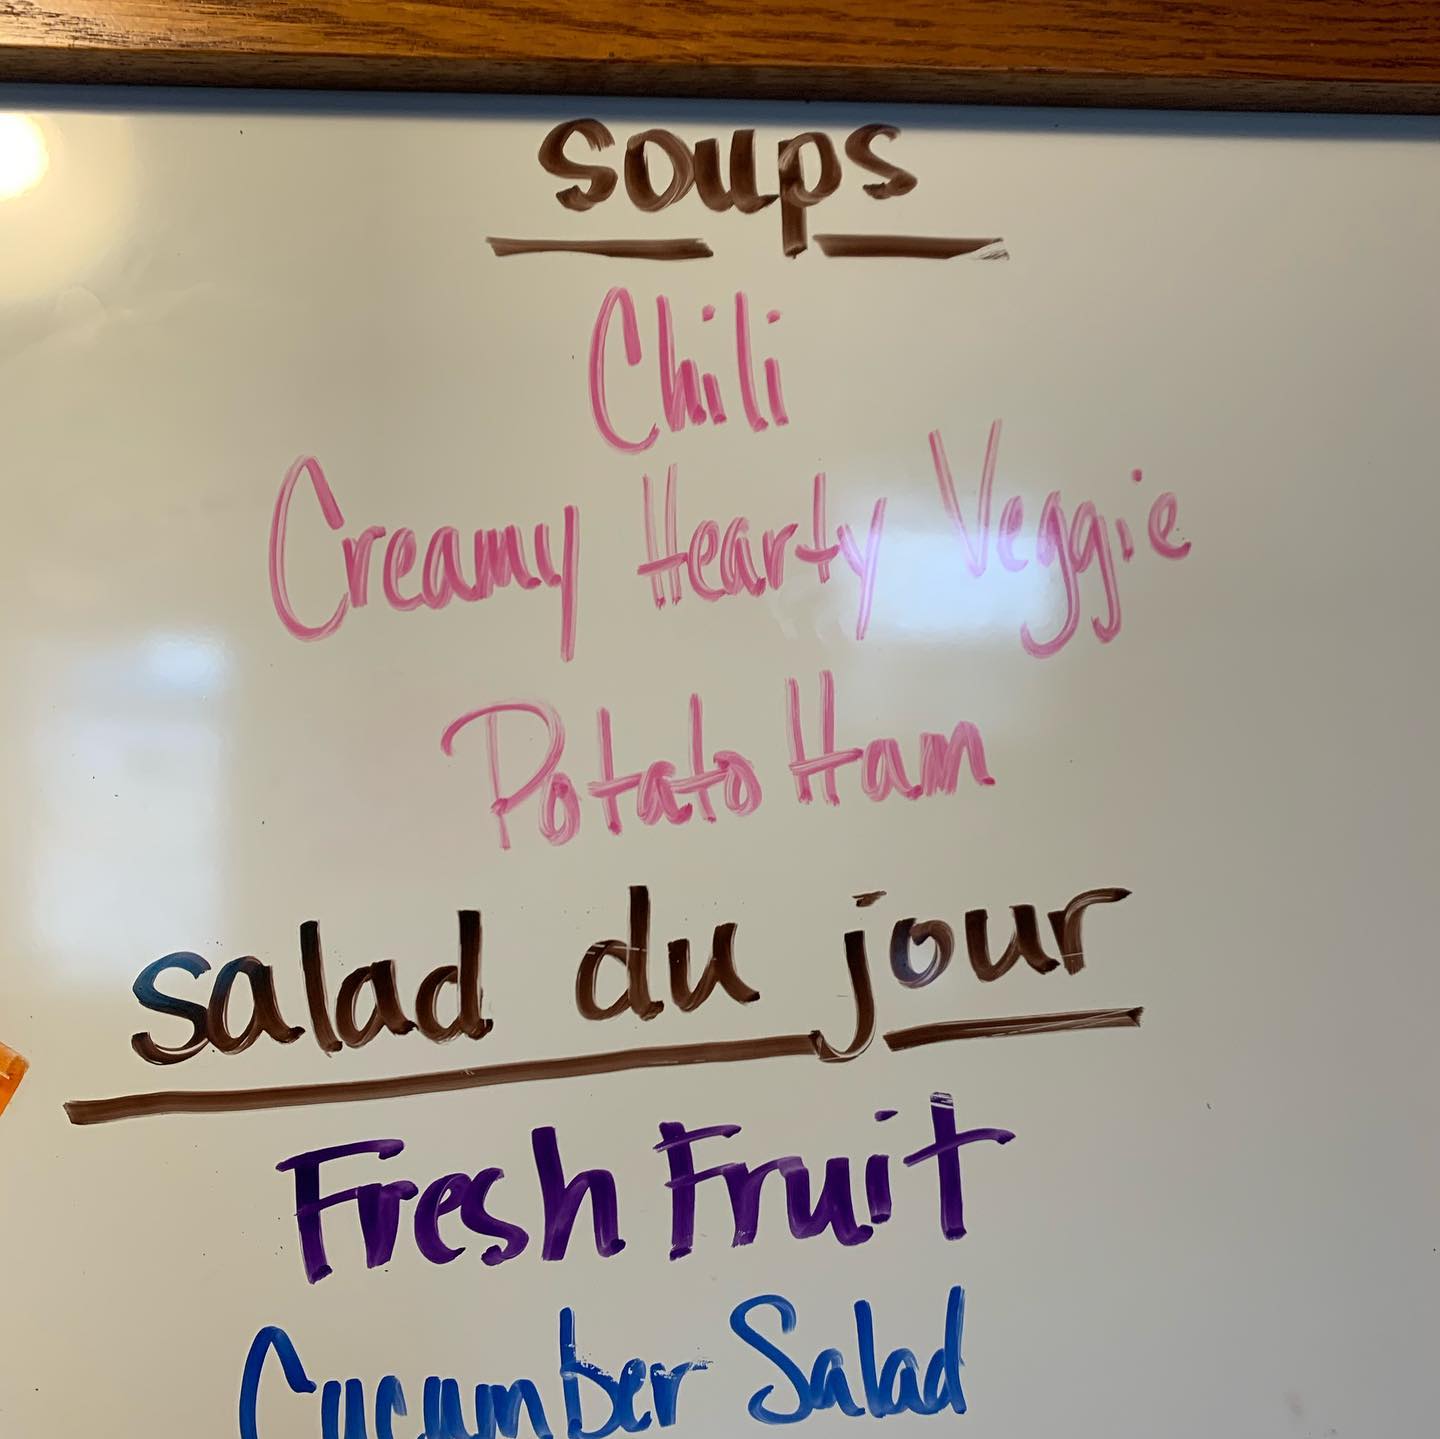 soups
Chili
Creamy Hearty Veggie
Potato Ham
salad du jour
Fresh Fruit
Cucumber Salad